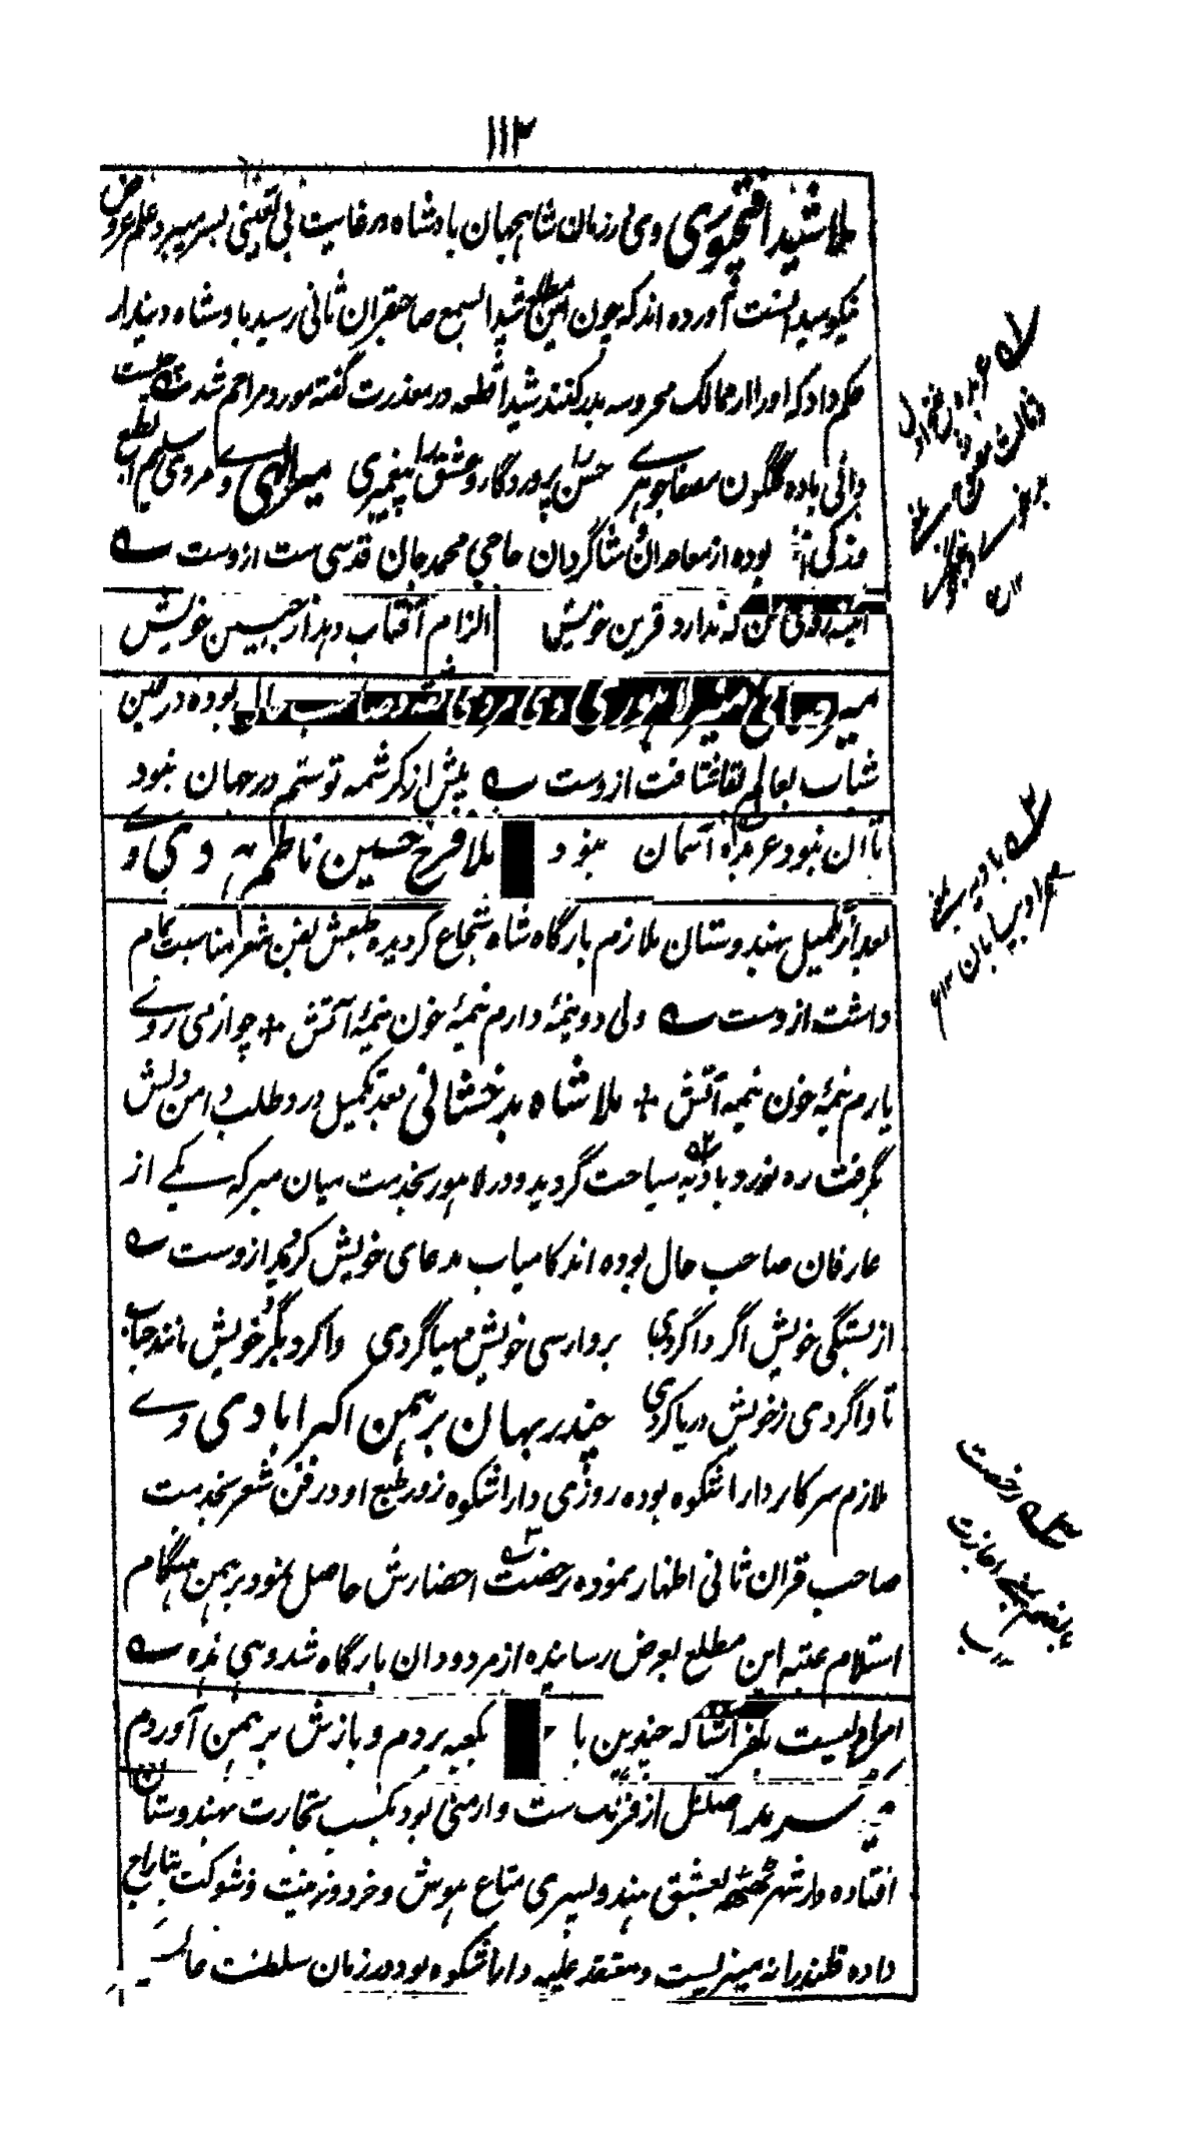 ۱۱۲
ملا شیدا فتحپوری وی در زمان شاهجهان بادشاه در غایت بی تعینی بسر میبرد علم عروض
نیکو میدانست آورده اند که چون این مطلع شیدا بسمع صاحبقران ثانی رسید بادشاه دیندار
حکم داد که او را از ممالک محروسه بدر کنند شیدا قطعه در معذرت گفته مورد مراحم شد
دانی باده گلگون مصفا جوهری حسن را پروردگار و عشق را پیغمبری میر الهی وی مردی سلیم الطبع
و زکی بوده از معاصران شاگردان حاجی محمد جان قدسی ست ازوست
آئینه روئی من که ندارد قرین خویش الزام آفتاب دهد از جبین خویش
میر بوده در عین
شباب بعالم بقا شتافت ازوست پیش از کرشمه تو ستم در جهان نبود
تا آن نبود عربده آسمان نبود ملا فرخ حسین ناظم هروی وی
بعد از تکمیل بهندوستان ملازم بارگاه شاه شجاع گردیده طبعش بفن شعر مناسبت تمام
داشت ازوست ولی دو نیمه دارم نیمهٔ خون نیمهٔ آتش + چو از می روی
یارم نیمهٔ خون نیمه آتش + ملا شاه بدخشانی بعد تکمیل درد طلب دامن دلش
بگرفت ره نورد بادیه سیاحت گردید و در لاهور بخدمت میان میر که یکی از
عارفان صاحب حال بوده اند کامیاب مدعای خویش گردید ازوست
از بستگی خویش اگر وا گردی بر وارسی خویش مهیا گردی وا کرد بگرد خویش مانند حباب
تا وا گردی ز خویش دریا گردی چندر بهان برهمن اکبرابادی وی
ملازم سرکار دارا شکوه بوده روزی دارا شکوه زور طبع او در فن شعر بخدمت
صاحب قران ثانی اظهار نموده رخصت احضارش حاصل نمود برهمن هنگام
استلام عتبه این مطلع بعرض رسانیده از مردودان بارگاه شد وهی هذه
مرا دلیست بکفر آشنا که چندین با بکعبه بردم و بازش برهمن آوردم
سرمد اصلش از فرنگ ست و ارمنی بود بکسب تجارت بهندوستان
افتاده در شهر تهتهه بعشق هندو پسری متاع هوش و خرد و زینت و شوکت بتاراج
داده قلندرانه میزیست و معتقد علیه دارا شکوه بود در زمان سلطنت عالم
۲ بادیه
صحرا و بیابان ۱۲
۳ رخصت
اجازت